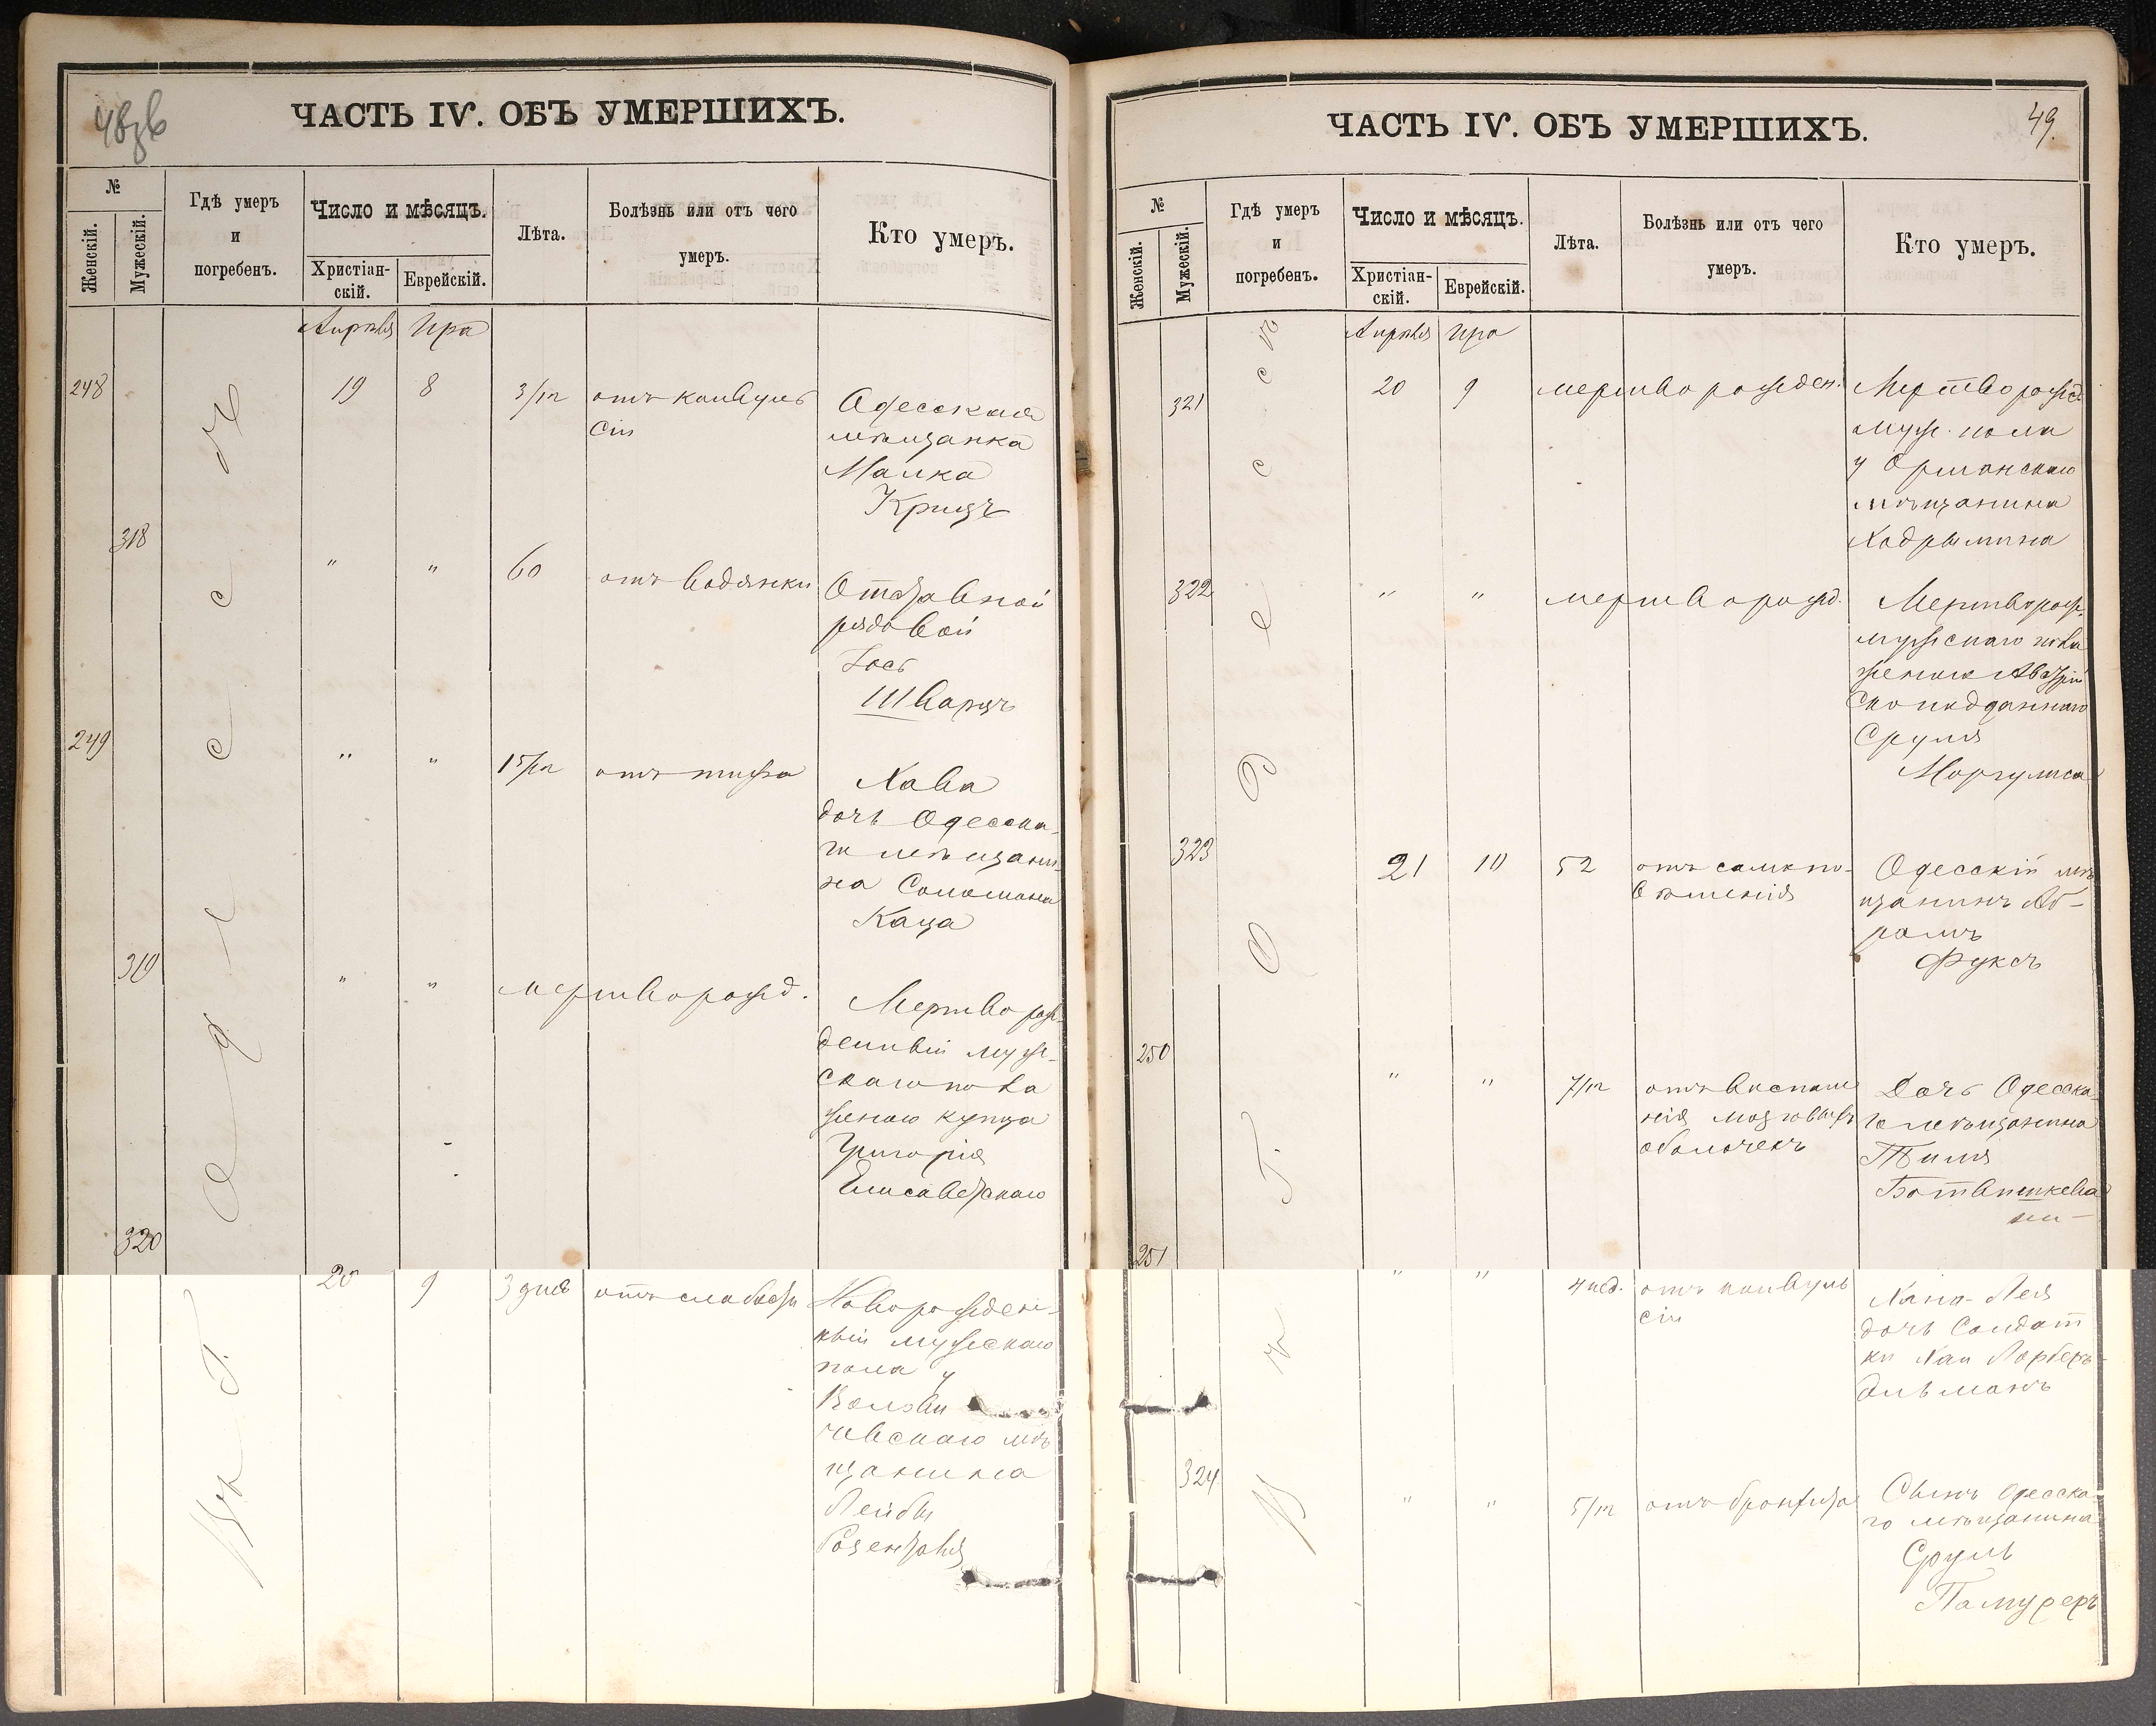 ЧАСТЬ IV. ОБЪ УМЕРШИХЪ.
№
Женскій.
Мужескій.
Гдѣ умеръ
и
погребенъ.
Число и мѣсяцъ.
Христіан-
скій.
Еврейскій.
Лѣта.
Болѣзнь или отъ чего
умеръ.
Кто умеръ.
Апрѣля Ира
248 19 8 3/м отъ конвуль
сіи
Одесская
мѣщанка
Малка
Крицъ
318 " " 60 отъ водянки
Отставной
рядовой
Іосъ
Шварцъ
249 " " 15/м отъ тифа
Хава
дочь Одесска-
го мѣщани-
на Соломона
Каца
319 " " мертворожд.
Мертворож-
денный муже-
скаго пола
женою купца
Григорія
Елисаветскаго
320 20 9 3 дня отъ слабости
Новорожден-
ный мужескаго
пола у
чевскаго мѣ
щанина
Лейбы
Въ г. Одессѣ
ЧАСТЬ IV. ОБЪ УМЕРШИХЪ.
49.
№
Женскій.
Мужескій.
Гдѣ умеръ
и
погребенъ.
Число и мѣсяцъ.
Христіан-
скій.
Еврейскій.
Лѣта.
Болѣзнь или отъ чего
умеръ.
Кто умеръ.
Апрѣля Ира
321 20 9 мертворожден.
Мертворожд
муж. пола
у Оршанскаго
мѣщанина
322 " " мертворожд.
Мертворож.
мужескаго пола
женою Австрій
ско подданнаго
Сруля
Моргулиса
323 21 10 52 отъ самопо-
вѣшенія
Одесскій мѣ
щанинъ Аб-
рамъ
Фуксъ
250 " " 7/м отъ воспале
нія мозговыхъ
оболочекъ
Дочь Одесска
го мѣщанина
251 " " 4 нед. отъ конвуль
сіи
Хана-Лея
дочь Солдат
ки Хаи
324 " " 5/м отъ бронхита
Сынъ Одесска-
го мѣщанина
Сруль
Въ г. Одессѣ